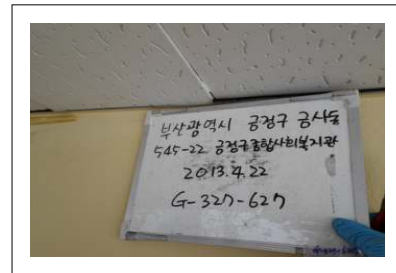 부산광역시 금정구 금사동
545-22 금정구종합사회복지관
2013.4.22
G-327-627